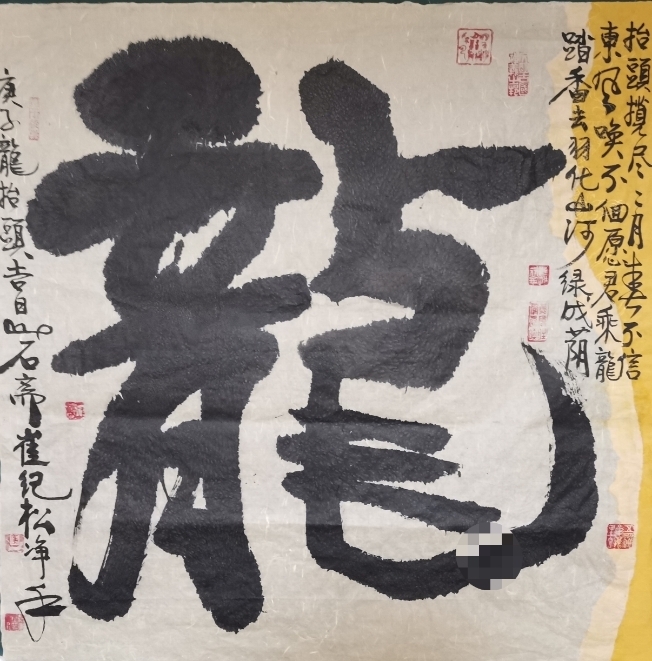 抬頭攬尽二月春不信
東風喚不個愿君乘龍
踏香去羽化山河绿成荫
龍
庚子龍抬頭吉日山石斋崔纪松净手